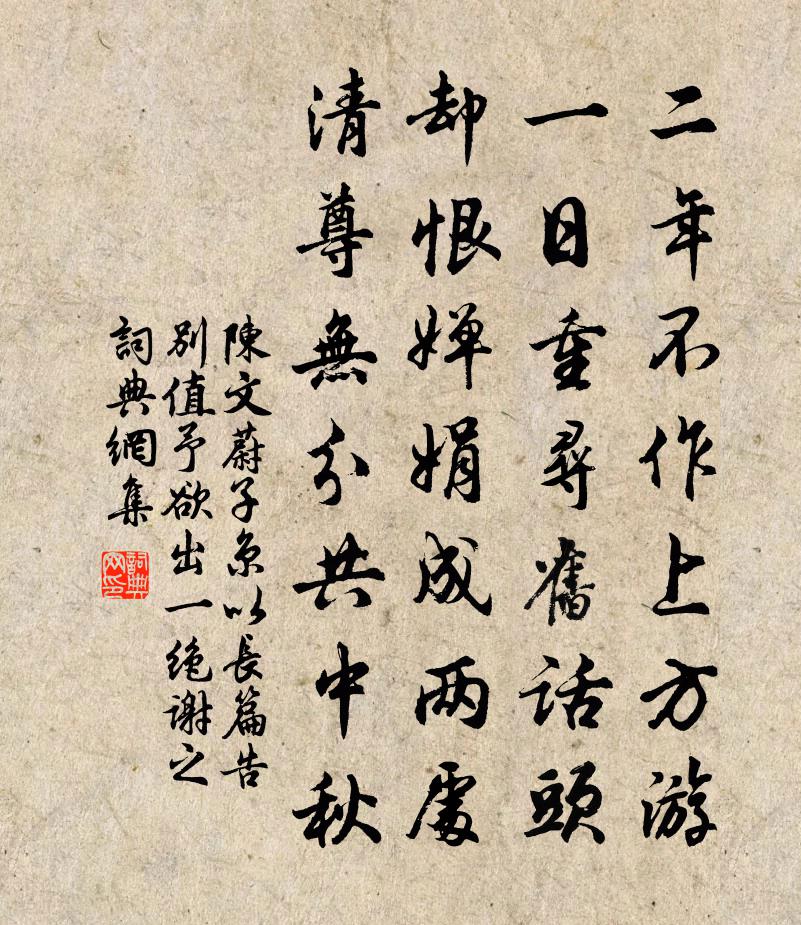 二年不作上方游
一日重尋舊話頭
却恨嬋娟成两處
清尊無分共中秋
陳文蔚子京以長篇告
別值予欲出一绝謝之
詞典網集
詞典网印